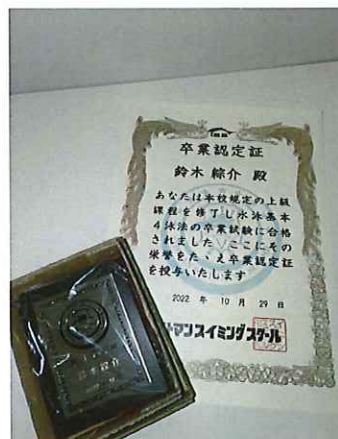 卒業認定証
鈴木 綜介 殿
あなたは本校規定の上級
課程を修了し水泳基本
4泳法の卒業試験に合格
されました ここにその
栄誉をたゝえ卒業認定証
を授与いたします
2022 年 10 月 29 日
トマンスイミングスクール